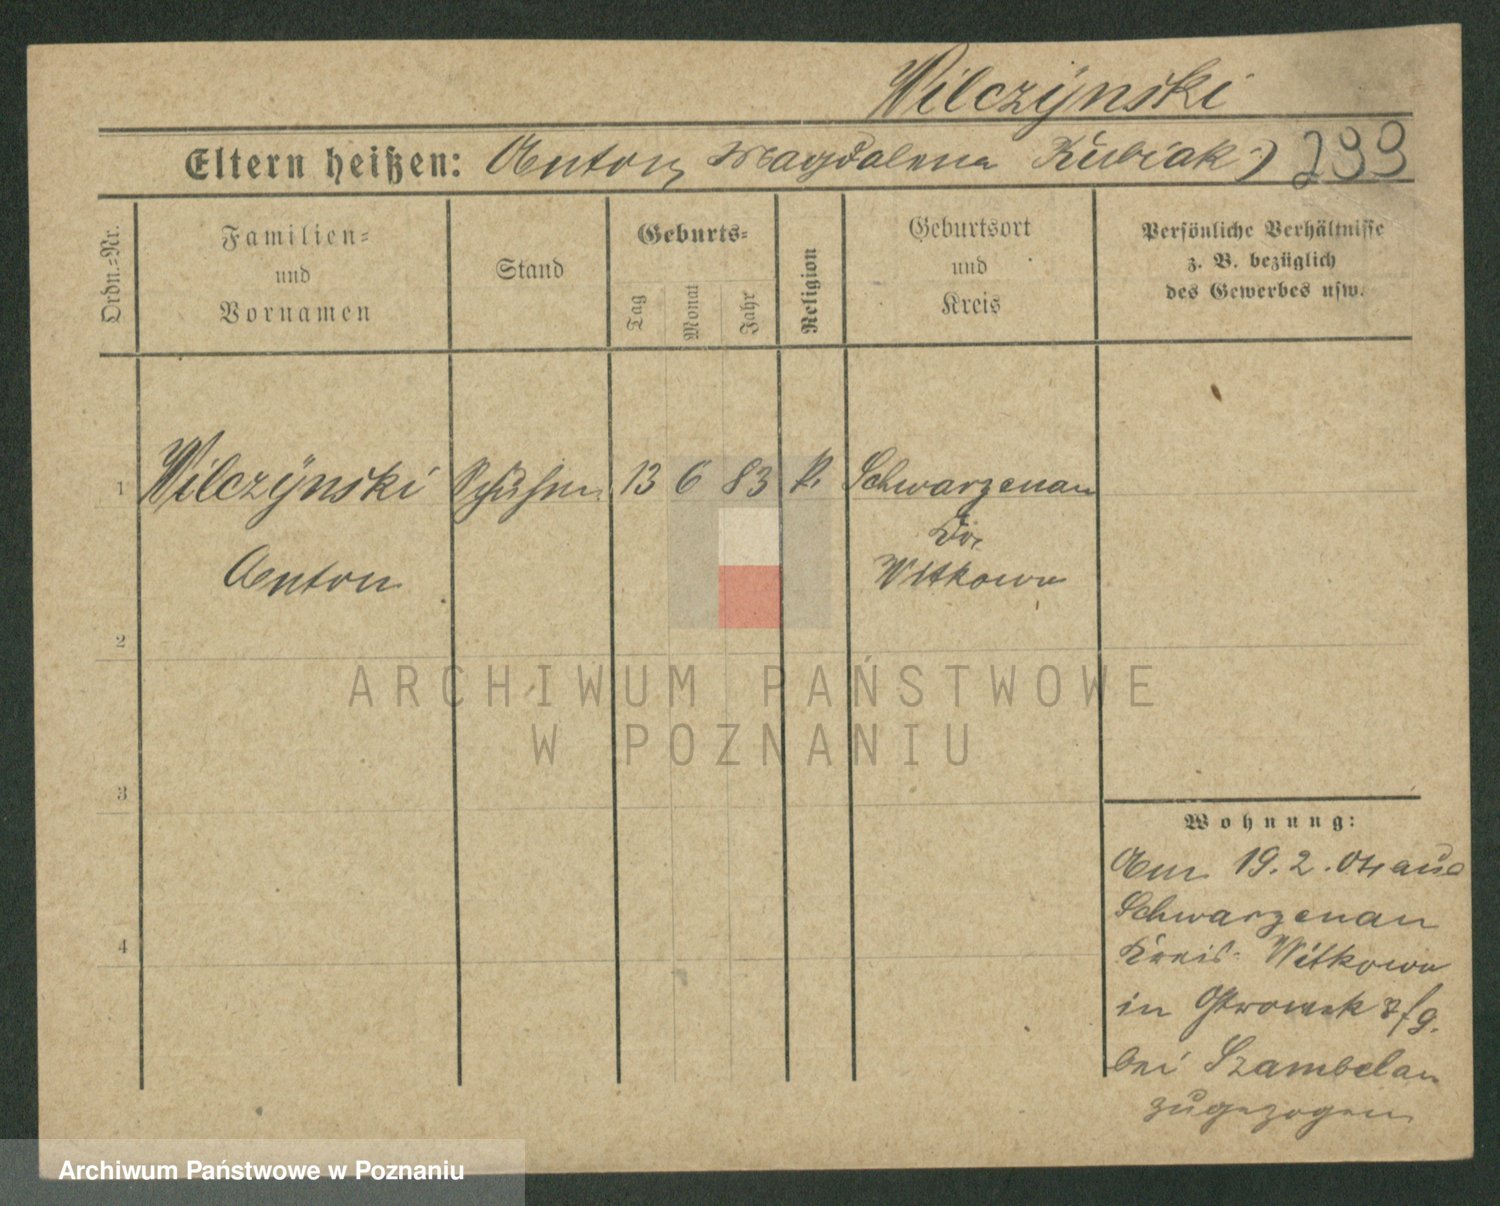 Wilczÿnski
Eltern heißen: Anton, Magdalena Kubiak) 299
Ordn.-Nr.
Familien-
und
Vornamen
Stand
Geburts-
Tag
Monat
Jahr
Religion
Geburtsort
und
Kreis
Persönliche Verhältnisse
z. B. bezüglich
des Gewerbes usw.
1 Wilczÿnski 13 6 83 Schwarzenau
Anton Witkowo
2
3
4
Wohnung:
Am 19. 2. 04 aus
Schwarzenau
Kreis Witkowo
in Ostrowek
bei Szambelan
zugezogen
ARCHIWUM PAŃSTWOWE
W POZNANIU
Archiwum Państwowe w Poznaniu